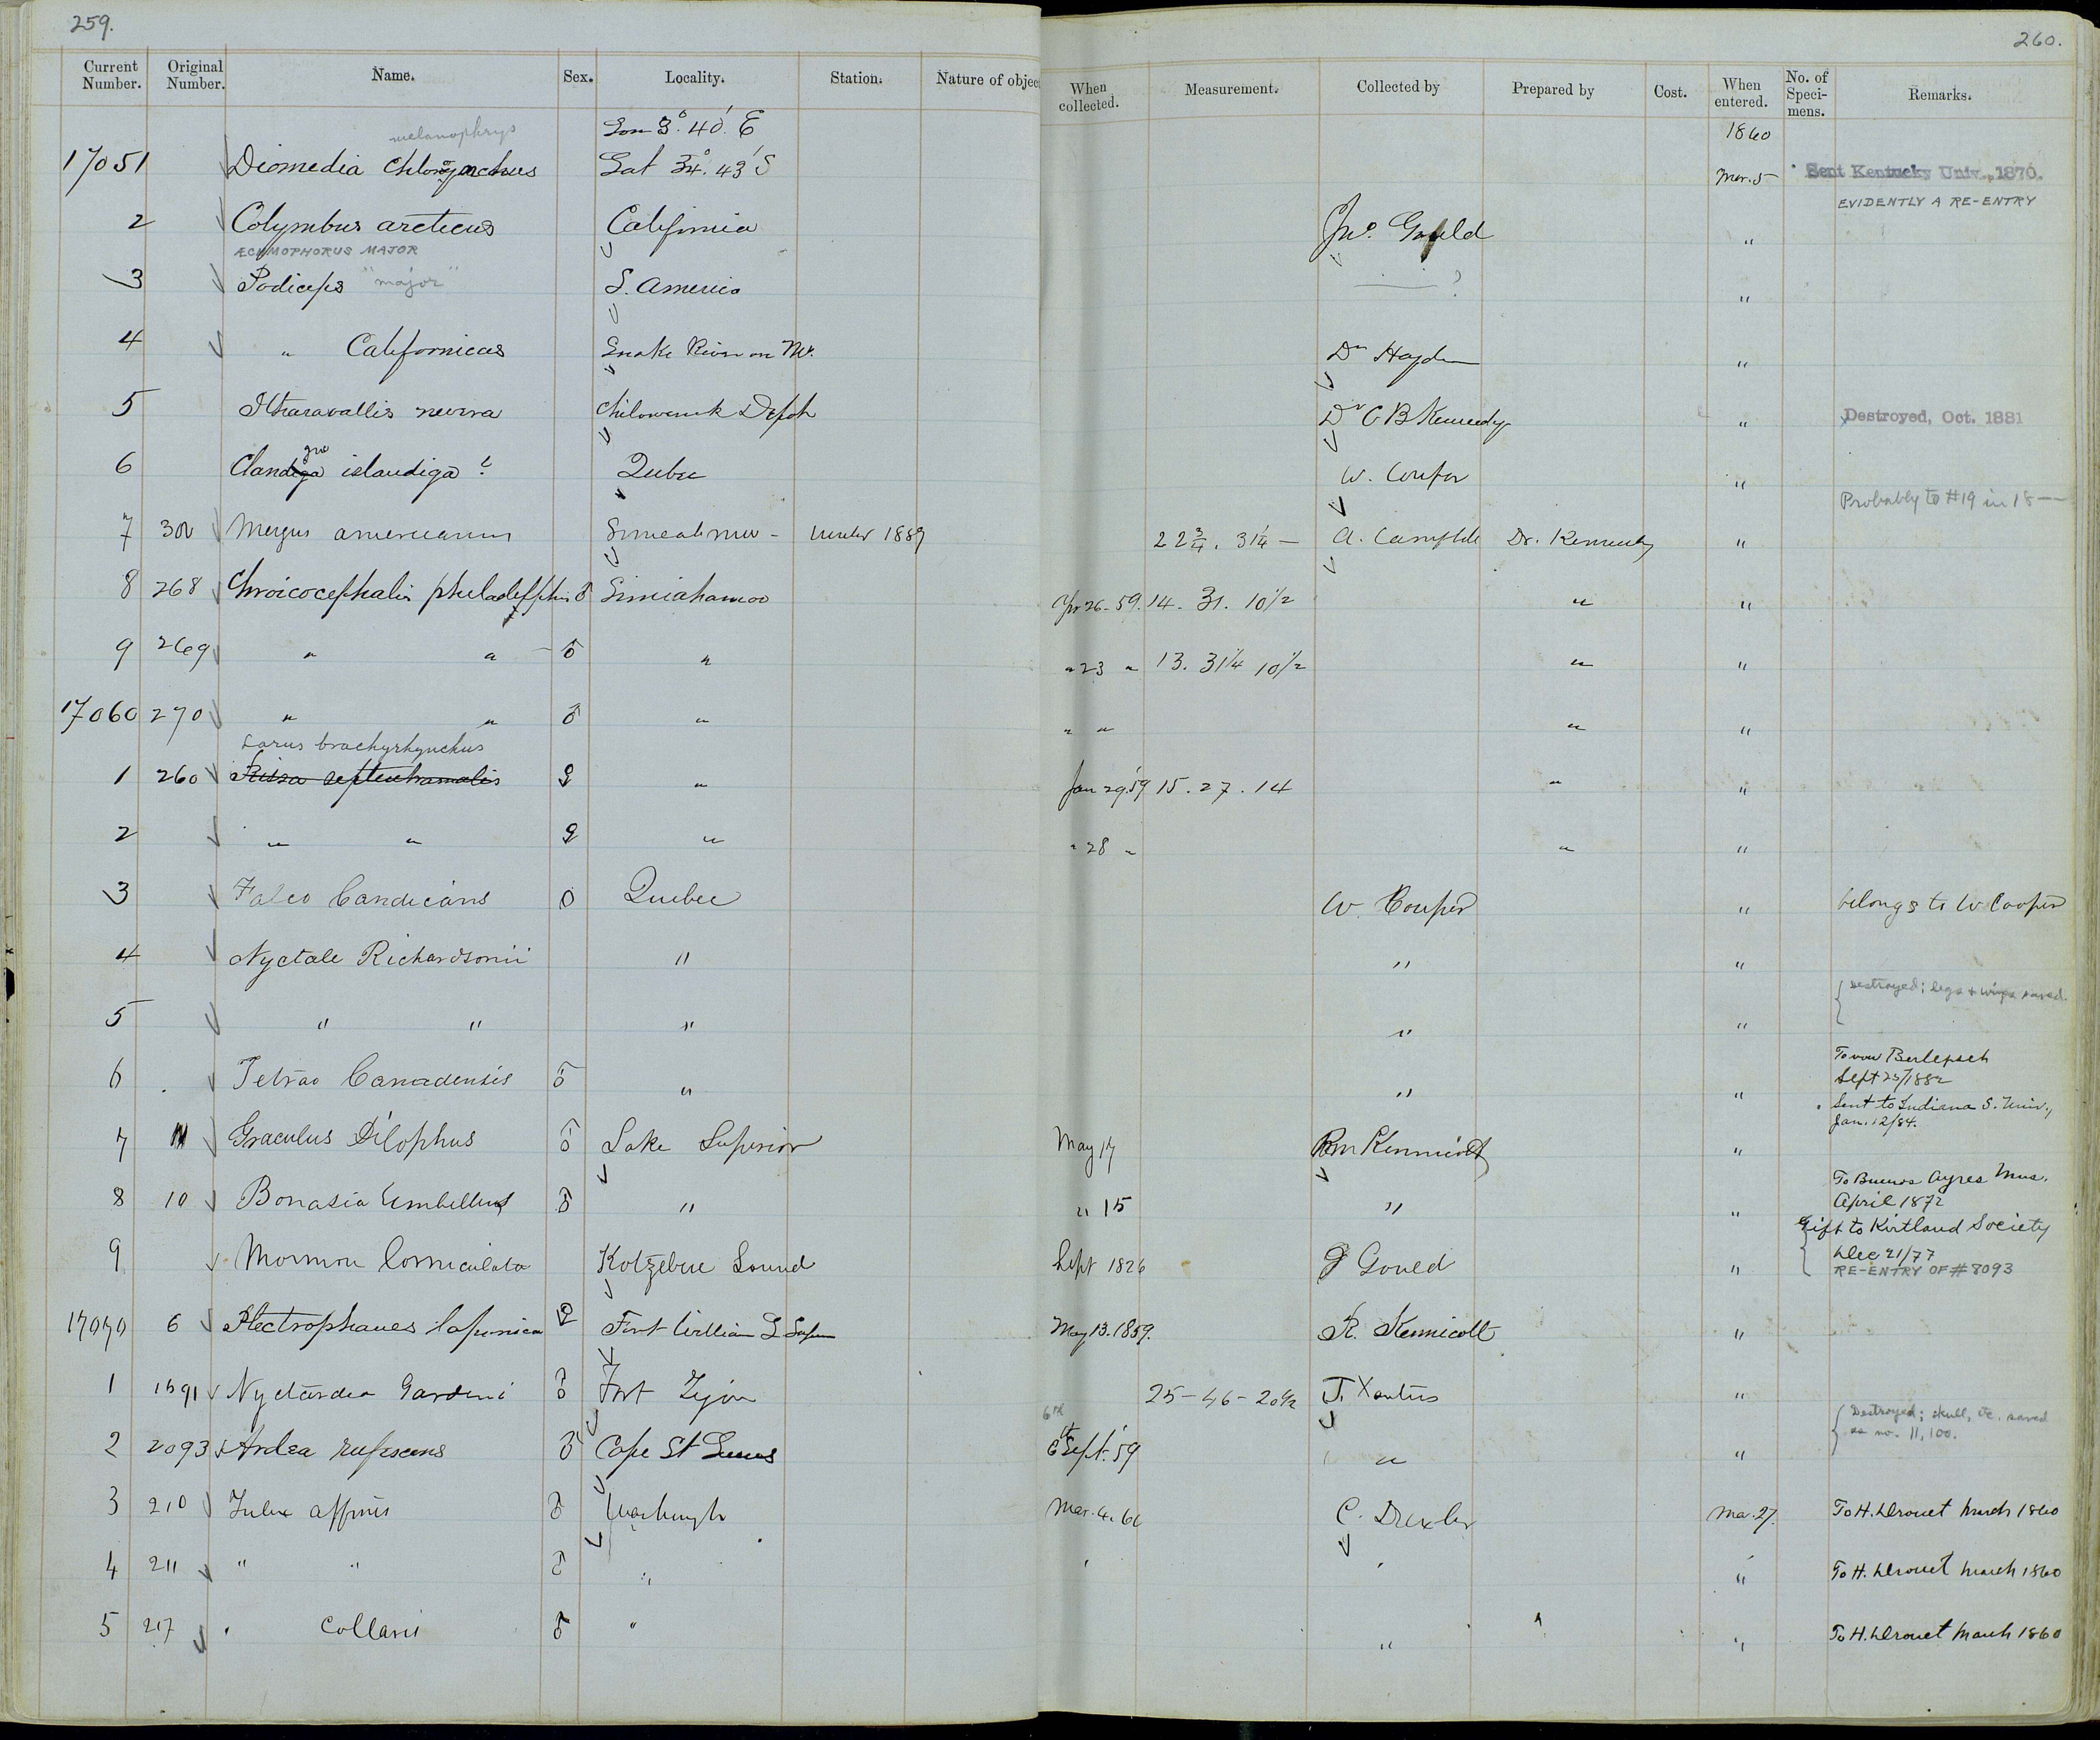 259.
260.
Current Number. Original Number. Name. Sex. Locality. Station. Nature of objec When collected. Measurement. Collected by Prepared by Cost. When entered. No. of Speci-mens. Remarks.
melanophrys Lon 3° 40' E 1860
17051 Diomedia Lat 34° 43' S Mar. 5 Sent Kentucky Univ., 1870.
EVIDENTLY A RE-ENTRY
2 Colymbus arcticus California Jno. Gould "
ÆCHMOPHORUS MAJOR
3 Podiceps "major" S. America ? "
4 " Californicus Snake River on Mo. Dr Hayden "
5 Chiloweuck Depot Dr C B Kennedy " Destroyed, Oct. 1881
6 islandiga ? Quebec W. Couper "
Probably to #19 in 18—
7 302 Mergus americanus 22 3/4. 31 1/4 — A. Campbell Dr. Kennerly "
8 268 Chroicocephalis philadelphia ♂ Simiahamoo Apr 26-59. 14. 31. 10 1/2 " "
9 269 " " ♂ " " 23 " 13. 31 1/4 10 1/2 " "
17060 270 " " ♂ " " " " "
Larus brachyrhynchus
1 260 Rissa septentrionalis ♀ " Jan 29.'59 15. 27. 14 " "
2 " " ♀ " " 28 " " "
3 Falco Candicans O Quebec W. Couper " belongs to W Cooper
4 Nyctale Richardsonii " " "
Destroyed; legs & wings saved.
5 " " " " "
6 Tetrao Canadensis ♂ " " " To von Berlepsch
Sept 25/1882
Sent to Indiana S. Univ.,
Jan. 12/84.
7 11 Graculus Dilophus ♂ Lake Superior May 17 Kennicott "
8 10 Bonasia Umbellus ♂ " " 15 " " To Buenos Ayres Mus.
April 1872
Gift to Kirtland Society
Dec 21/77
9 Mormon Corniculata Kotzebue Sound Sept 1826 J Gould " RE-ENTRY OF # 8093
17070 6 Plectrophanes laponica ♀ Fort William L Super May 13. 1859. R. Kennicott "
1 1591 Nyctardea Gardeni ♂ Fort Tejon 25 - 46 - 20 1/2 J. Xantus "
6th Destroyed; skull, etc. saved
as no. 11,100.
2 2093 Ardea rufescens ♂ Cape St Lucas 6th Sept. '59 " "
3 210 Fulix affinis ♂ Mar. 4. 60 C. Drexler Mar. 27. To H. Drouet March 1860
4 211 " " ♂ " " " " To H. Drouet March 1860
5 217 " Collaris ♂ " " " To H. Drouet March 1860